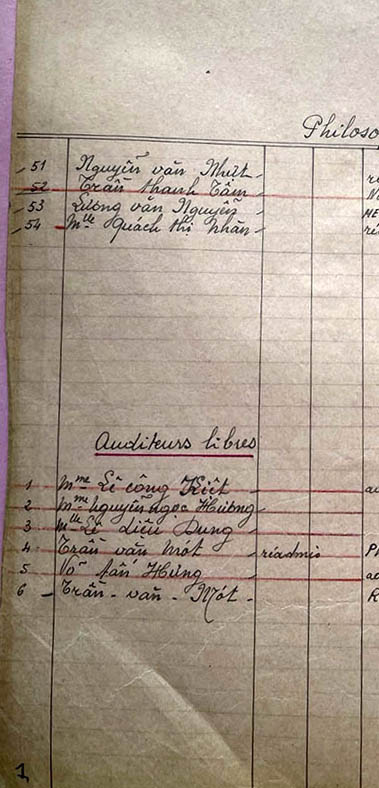 Philoso
51 Nguyễn văn Nhứt
52 Trần thanh Tâm
53 Lương văn Nguyên
54 Mlle Quách thị Nhàn
Auditeurs libres
1 Mme Lê công Kiệt
2 Mme Nguyễn ngọc Hương
3 Mlle Lê diệu Dung
4 Trần văn Mốt réadmis
5 Võ tấn Hưng
6 Trần - văn - Mốt
1